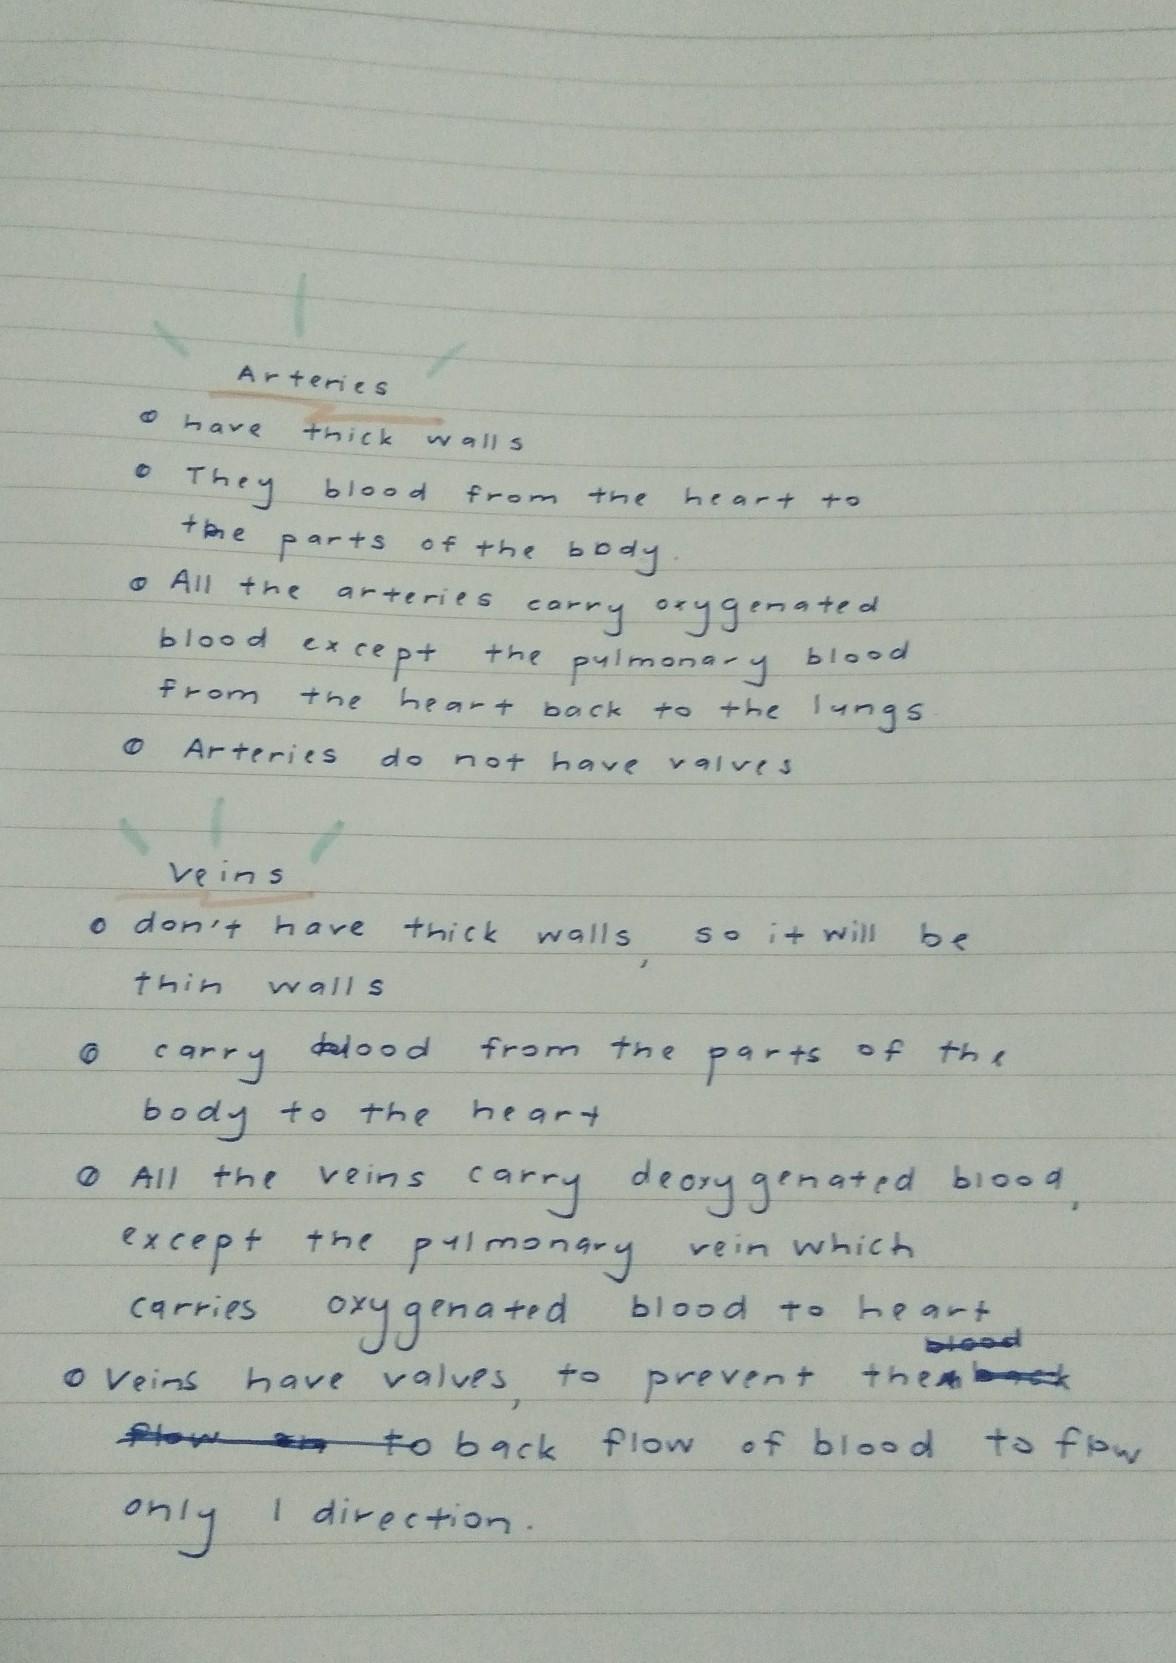 Arteries
have thick walls
They blood from the heart to
the parts of the body.
All the arteries carry oxygenated
blood except the pulmonary blood
from the heart back to the lungs
Arteries do not have valves
Veins
don't have thick walls, so it will be
thin walls
carry blood from the parts of the
body to the heart
All the veins carry deoxygenated blood,
except the pulmonary vein which
carries oxygenated blood to heart
blood
Veins have valves, to prevent the back
flow to back flow of blood to flow
only 1 direction.